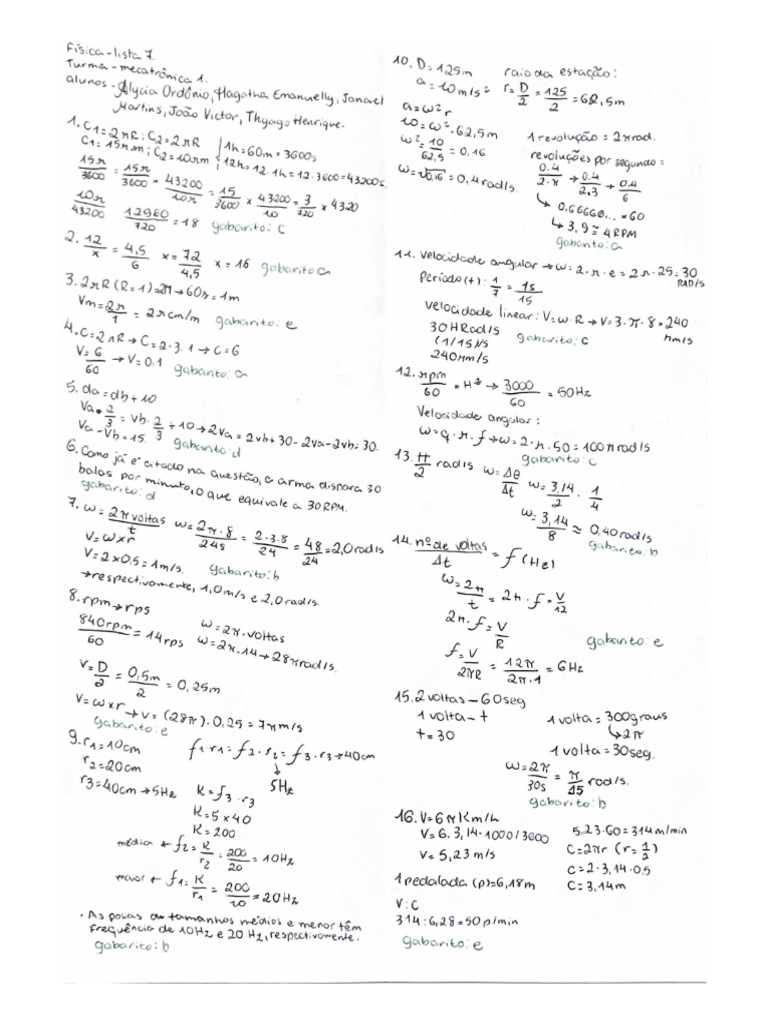 Física - lista 7.
Turma - mecatrônica 1.
alunos - Alycia Ordônio, Hagatha Emanuelly, Janavel
Martins, João Victor, Thyago Henrique.
1. C1 = 2πR; C2 = 2πR
C1 = 15π m; C2 = 10π m
1h = 60m = 3600s
12h = 12 · 1h = 12 · 3600 = 43200s.
15π/3600 / 10π/43200 = 15π/3600 × 43200/10π = 15/3600 × 43200/10 = 3/720 × 4320
12960/720 = 18 gabarito: c
2. 12/x = 4,5/6 x = 72/4,5 x = 16 gabarito a
3. 2πR (R = 1) = 2π → 60s = 1m
Vm = 2π/1 = 2π cm/m gabarito: e
4. C = 2πR → C = 2 · 3 · 1 → C = 6
V = 6/60 → V = 0.1 gabarito: a
5. da = db + 10
Va · 2/3 = Vb · 2/3 + 10 → 2Va = 2vb + 30 - 2va - 2vb = 30.
Va - Vb = 15. gabarito: d
6. Como já é citado na questão, a arma dispara 30
balas por minuto, o que equivale a 30 RPM.
gabarito: d
7. ω = 2π voltas/t ω = 2π · 8/24s = 2 · 3 · 8/24 = 48/24 = 2,0 rad/s
V = ω × r
V = 2 × 0,5 = 1 m/s. gabarito: b
→ respectivamente, 1,0 m/s e 2,0 rad/s.
8. rpm → rps
840rpm/60 = 14 rps
ω = 2π · voltas
ω = 2π · 14 → 28π rad/s.
v = D/2 = 0,5m/2 = 0,25m
V = ω × r → v = (28π) · 0,25 = 7π m/s
gabarito: e
9. r1 = 10cm
r2 = 20cm
r3 = 40cm → 5Hz
f1 · r1 = f2 · r2 = f3 · r3 → 40cm
↓
5Hz
K = f3 · r3
K = 5 × 40
K = 200
média ← f2 = K/r2 = 200/20 = 10Hz
maior ← f1 = K/r1 = 200/10 = 20Hz
· As polias de tamanhos médios e menor têm
frequência de 10Hz e 20 Hz, respectivamente.
gabarito: b
10. D = 125m
a = 10 m/s²
raio da estação:
r = D/2 = 125/2 = 62,5m
a = ω² r
10 = ω² · 62,5m
ω² = 10/62,5 = 0,16
ω = √0,16 = 0,4 rad/s
1 revolução = 2π rad.
revoluções por segundo =
0.4/2·π → 0.4/2.3 → 0.4/6
↳ 0,06666... × 60
↳ 3,9 ≅ 4 RPM
gabarito: a
11. Velocidade angular → ω = 2 · π · e = 2π · 25 = 30 RAD/S
Período (t): 1/7 = 1s/15
Velocidade linear: V = ω · R → V = 3 · π · 8 = 240 πm/s
30 H Rad/s
(1/15)/s
240πm/s
gabarito: c
12. rpm/60 = Hz → 3000/60 = 50Hz
Velocidade angular:
ω = q · π · f → ω = 2 · π · 50 = 100π rad/s
gabarito: c
13. π/2 rad/s ω = Δθ/Δt
ω = 3,14/2 · 1/4
ω = 3,14/8 ≈ 0,40 rad/s
gabarito: b
14. nº de voltas/Δt = f (Hz)
ω = 2π/t = 2π · f = V/12
2π · f = V/R
f = V/2πR = 12π/2π·1 = 6Hz
gabarito: e
15. 2 voltas - 60 seg
1 volta - t
t = 30
1 volta = 300 graus
↳ 2π
1 volta = 30seg.
ω = 2π/30s = π/15 rad/s.
gabarito: b
16. V = 6π Km/h
V = 6 . 3,14 · 1000/3600
V = 5,23 m/s
5.23 · 60 = 314 m/min
C = 2πr (r = 1/2)
C = 2 · 3,14 · 0.5
C = 3,14m
1 pedalada (p) = 6,18m
V : C
314 : 6,28 = 50 p/min
gabarito: e